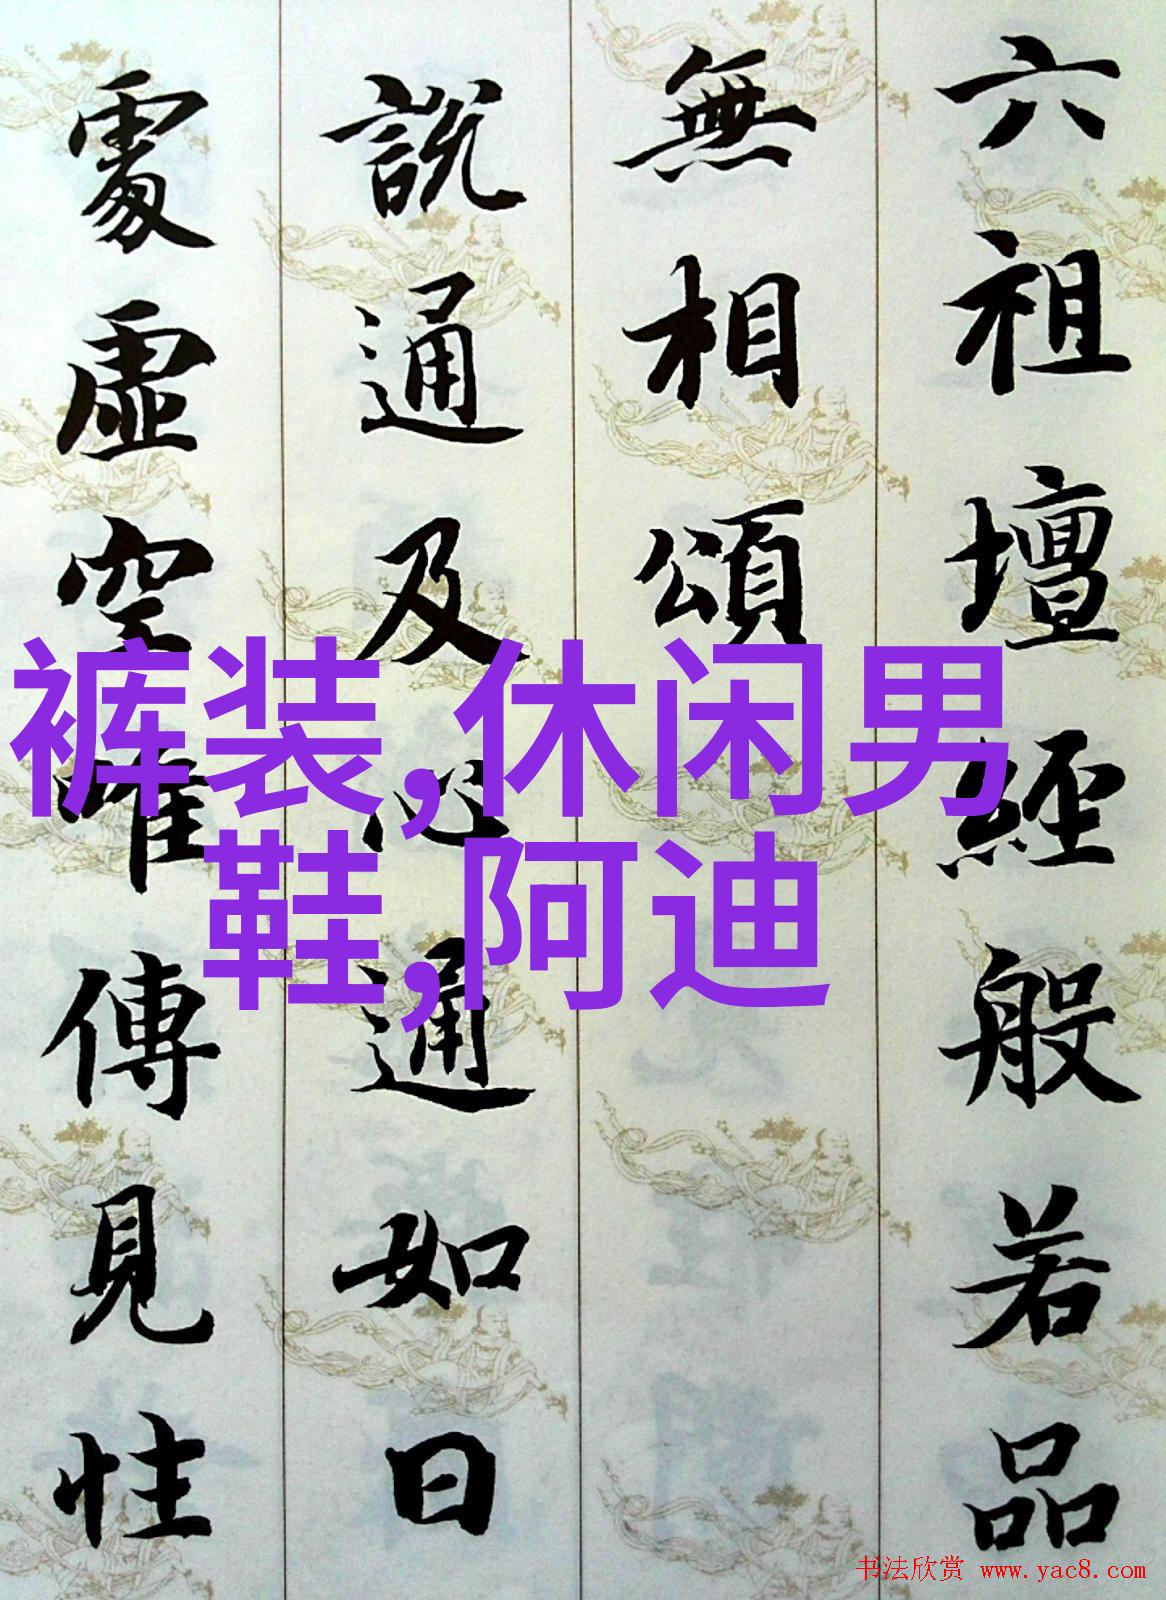 六祖壇經般若品
無相頌
說通及心通如日
處虛空唯傳見性
裤装,休闲男
鞋,阿迪
书法欣赏 www.yac8.com